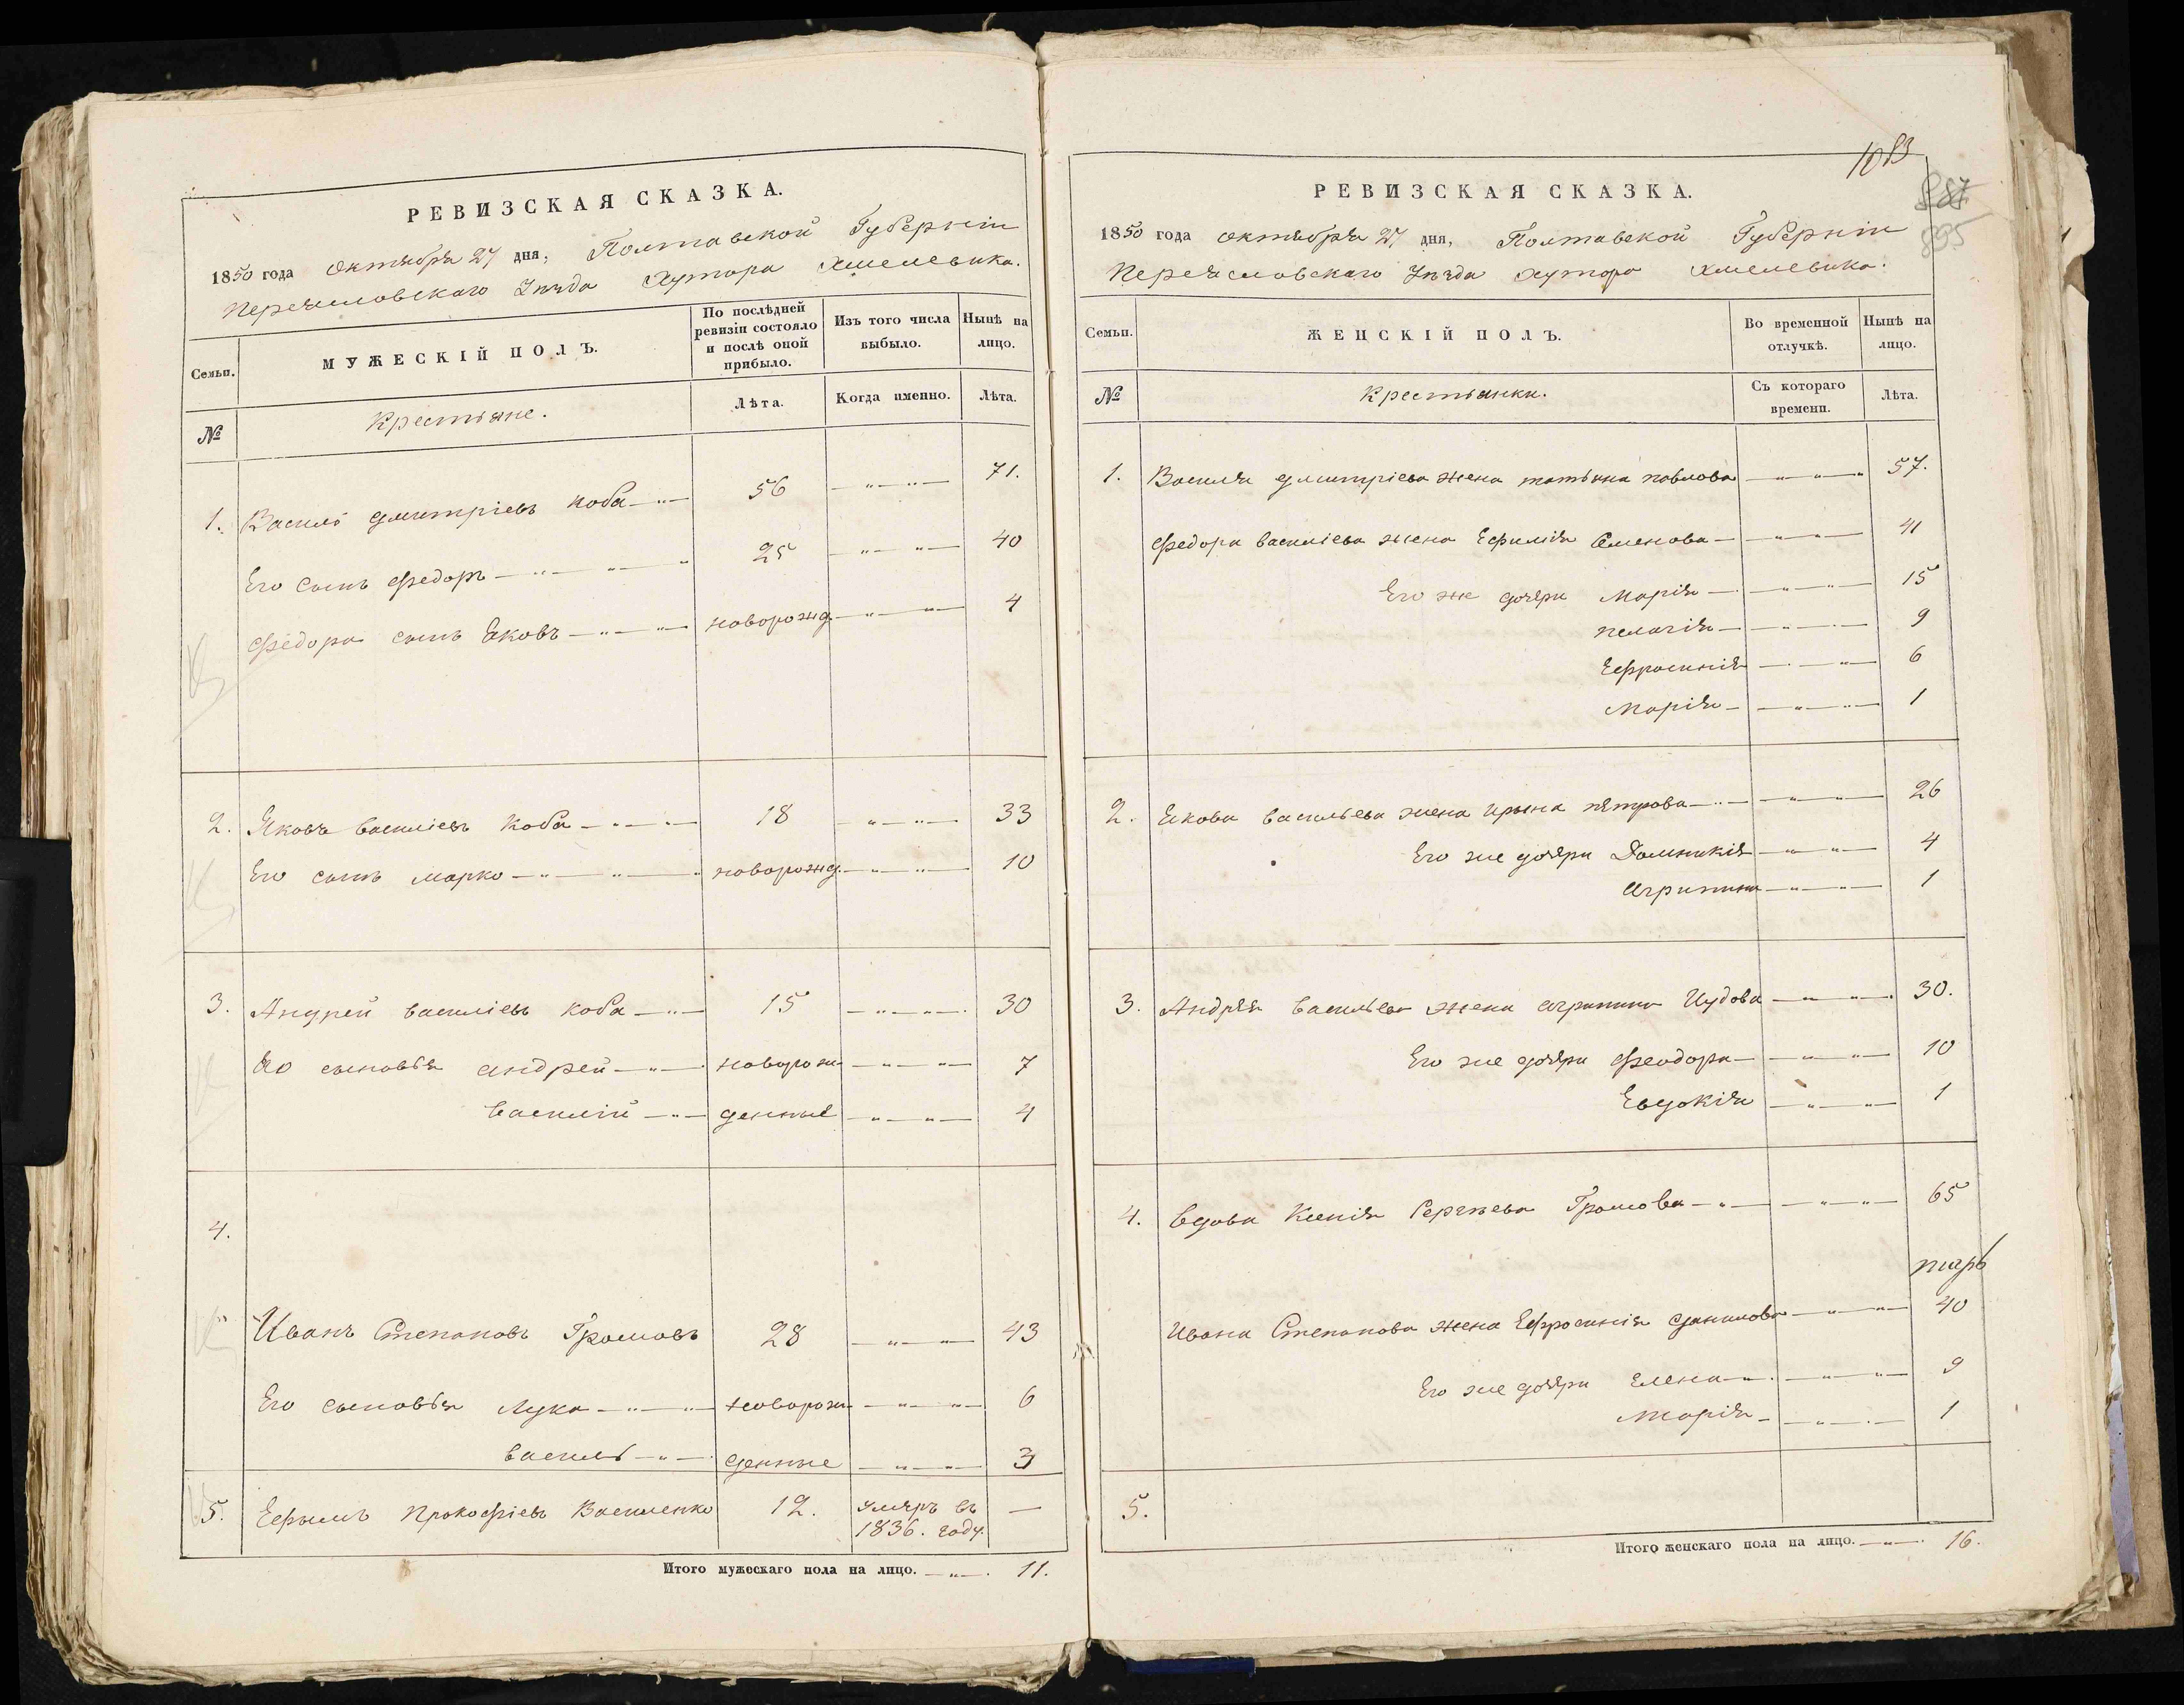 РЕВИЗСКАЯ СКАЗКА.
1850 года октября 27 дня, Полтавской Губернiи
Переяславскаго Уѣзда Хутора Хмелевика.
Семьи.
МУЖЕСКIЙ ПОЛЪ.
По послѣдней ревизiи состояло и послѣ оной прибыло.
Изъ того числа выбыло.
Нынѣ на лицо.
№
Крестьяне.
Лѣта.
Когда именно.
Лѣта.
1. Василь Дмитрiевъ Коба 56 71.
Его сынъ Федоръ 25 40
Федора сынъ Яковъ новорожд. 4
2. Яковъ Василiевъ Коба 18 33
Его сынъ Марко новорожд. 10
3. Андрей Василiевъ Коба 15 30
Его сыновья Андрей новорож 7
Василiй денные 4
4.
Иванъ Степановъ Громовъ 28 43
Его сыновья Лука новорож 6
Василь денные 3
5. Ефымъ Прокофiевъ Василенко 12. умеръ въ —
1836. году.
Итого мужескаго пола на лицо. 11.
1083
887
895
РЕВИЗСКАЯ СКАЗКА.
1850 года октября 27 дня, Полтавской Губернiи
Переясловскаго Уѣзда хутора Хмелевика.
Семьи.
ЖЕНСКIЙ ПОЛЪ.
Во временной отлучкѣ.
Нынѣ на лицо.
№
Крестьянки.
Съ котораго времени.
Лѣта.
1. Василя Дмитрiева жена Татьяна Павлова 57.
Федора Василiева жена Ефимiя Семенова 41
Его же дочери Марiя 15
Пелагiя 9
Ефросинiя 6
Марiя 1
2. Якова Васильева жена Ирына Петрова 26
Его же дочери Домникiя 4
Агрипина 1
3. Андрея Васильева жена Агрипина Иудова 30.
Его же дочери Феодора 10
Евдокiя 1
4. Вдова Ксенiя Сергѣева Громова 65
Ивана Степанова жена Ефросинiя Данилова 40
Его же дочери Елена 9
Марiя 1
5.
Итого женскаго пола на лицо. 16.